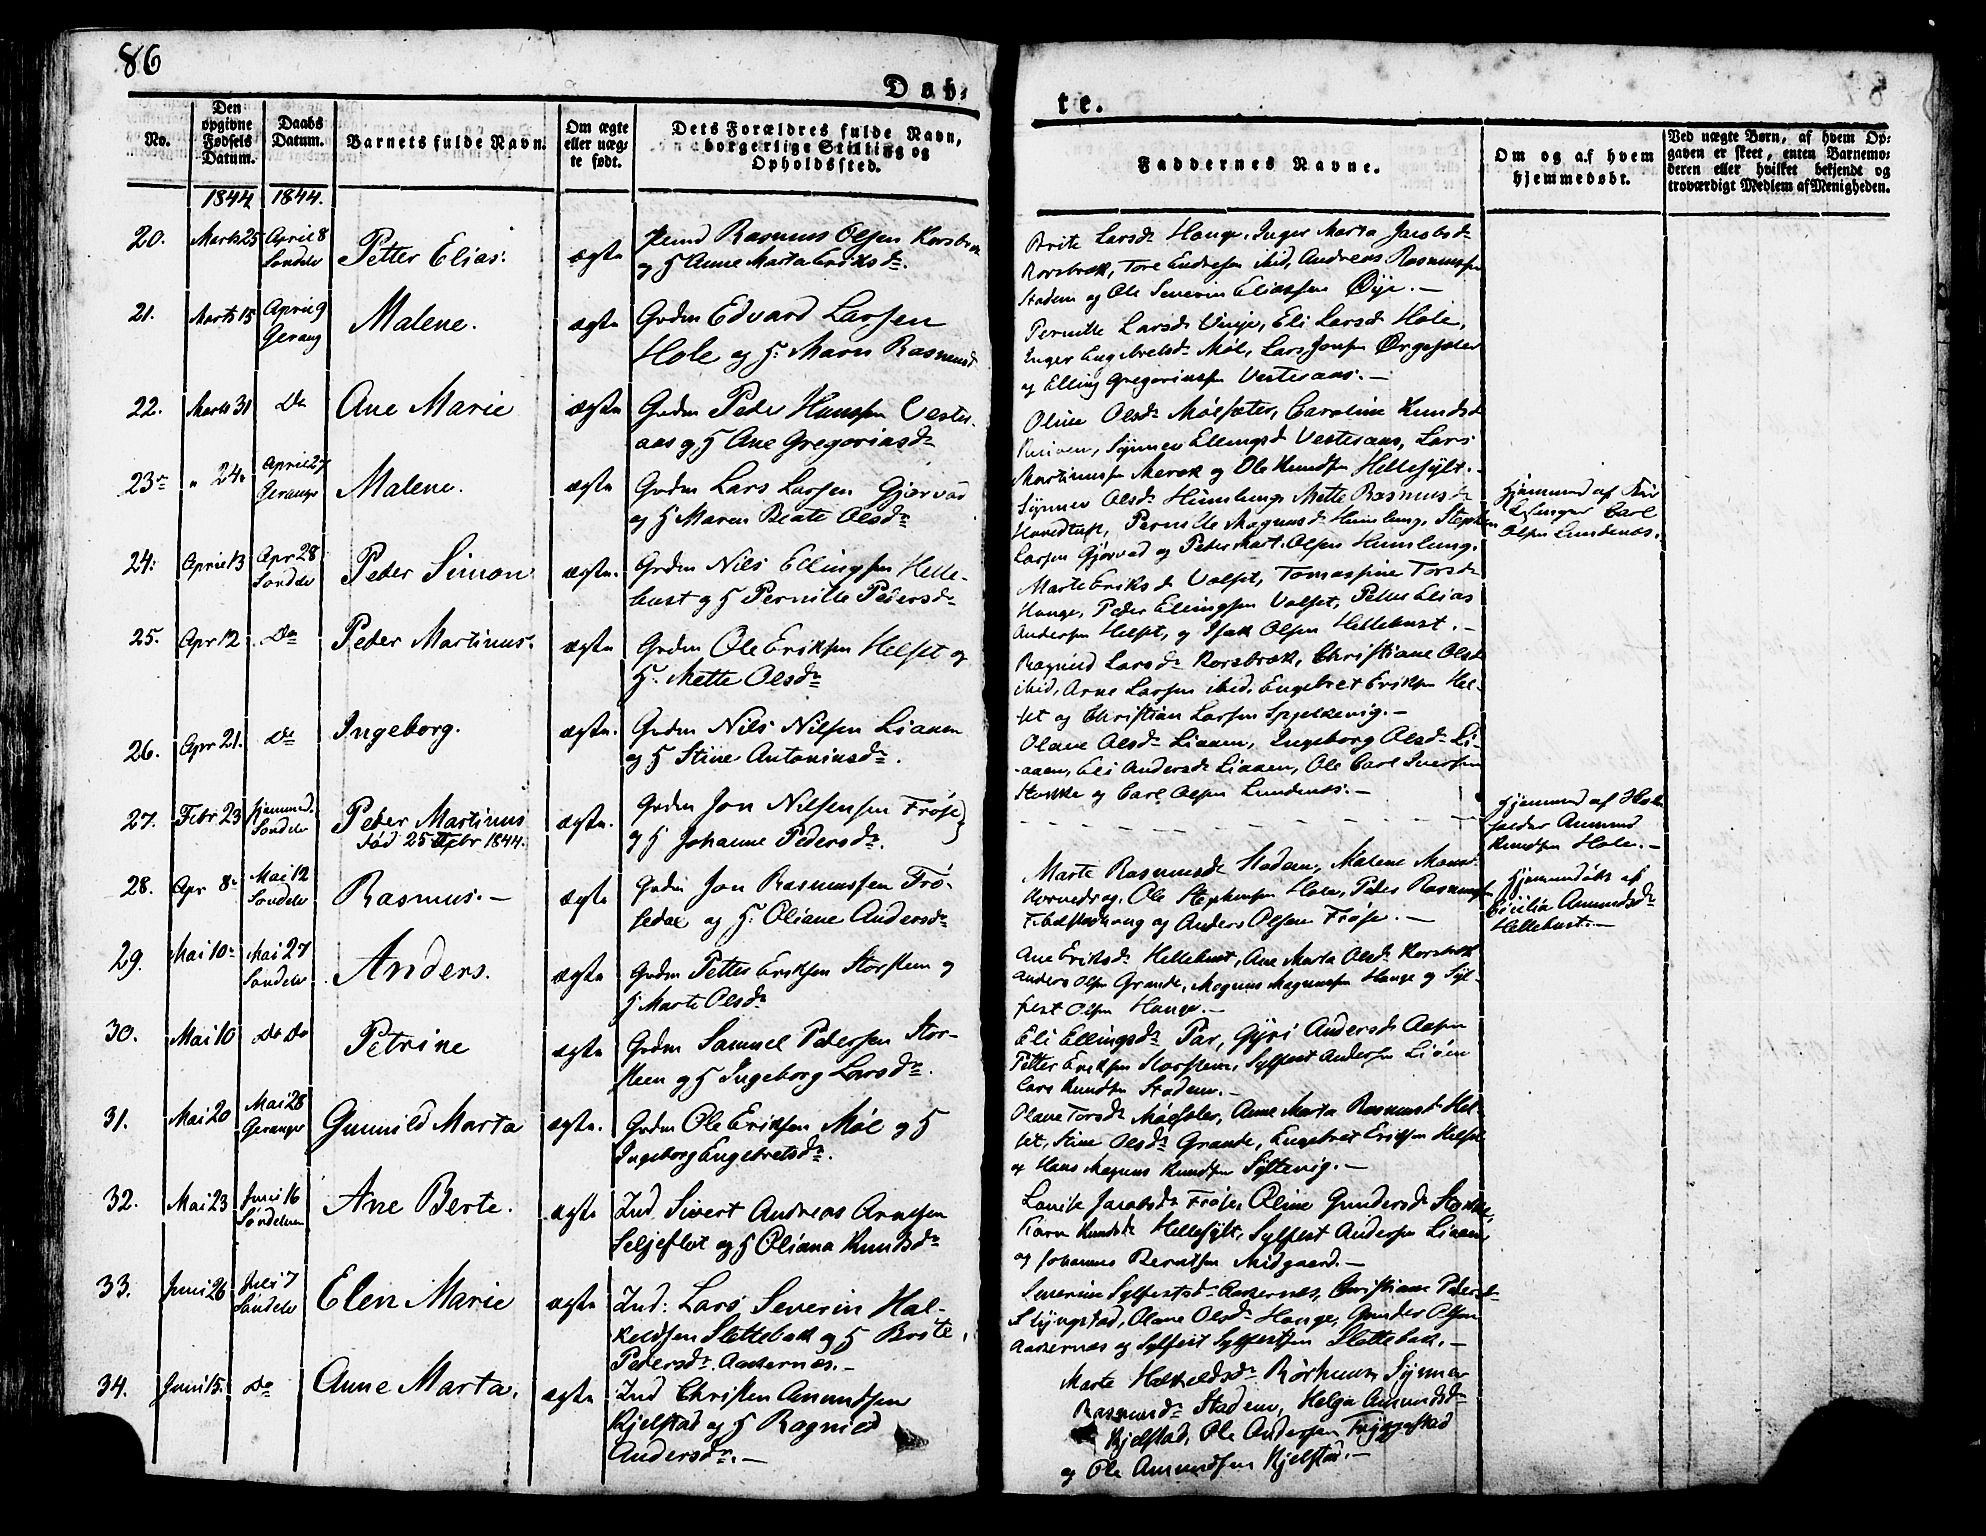 86
Døb-
te.
No.
Den opgivne Fødsels Datum.
Daabs Datum.
Barnets fulde Navn.
Om ægte eller uægte født.
Dets Forældres fulde Navn, borgerlige Stilling og Opholdssted.
Faddernes Navne.
Om og af hvem hjemmedøbt.
Ved uægte Børn, af hvem Opgaven er skeet, enten Barnemoderen eller hvilket bekjendt og troværdigt Medlem af Menigheden.
1844 1844.
20. Marts 25 April 8 Petter Elias. ægte Rasmus Olsen Korsbræk
og H Anne Marta Eriksdr.
Brite Larsdr Hauge, Inger Marta Jacobsdr
Korsbræk, Tore Endresen ibid, Andreas Rasmussen
Stadem og Ole Severin Eliassen Øije.—
21. Marts 15 April 9 Gerang Malene. ægte Grdm Edvard Larsen
Hole og H. Maren Rasmusd
Pernille Larsdr Vinje, Eli Larsdr Hole,
Inger Engebretsdr Møl, Lars Jonsen
og Elling Gregoriussen Vesteraas.—
22. Marts 31 Do Ane Marie ægte Grdm Peder Hanssen Vester-
aas og H Ane Gregoriusdr
Oline Olsdr Mølsæter, Caroline Knudsd
Synnev Ellingsd Vesteraas, Lars
Martinussen Merok og Ole Knudsen Hellesylt.
23 " 24 April 27 Geranger Malene. ægte Grdm Lars Larsen Gjørvad
og H Maren Beate Olsdr
Synnev Olsdr Humlung, Mette Rasmusdr
Hovedtuk, Pernille Magnusdr Humlung, Stephen
Larsen Gjørvad og Peder Mart. Olsen Humlung.
Olsen Lundenæs.
24. April 13 Apr 28 Peder Simon ægte. Grdm Nils Ellingsen Helle-
bust og H Pernille Pedersdr
Marte Eriksdr Volset, Tomassine Torsdr
Hauge, Peder Ellingsen Volset, Petter Elias
Andersen Helset, og Isak Olsen Hellebust.—
25. Apr 12 Do Peder Martinus. ægte Grdm Ole Eriksen Helset og
H. Mette Olsdr
Ragnild Larsdr Korsbræk, Christiane Olsd
ibid, Arne Larsen ibid, Engebret Eriksen Hel-
set og Christian Larsen
26. Apr 21. Do Ingeborg. ægte. Grdm Nils Nilsen Liaaen
og H Stine Antoniusdr.
Olave Olsdr Liaaen, Ingeborg Olsdr Li-
aaen, Eli Andersd Liaaen, Ole Carl Iversen
Stokke og Carl Olsen Lundenæs.—
27. Febr 23 Hjemmed. Peder Martinus
død 25 Febr 1844.
ægte. Grdm Jon Nilsen Frøse
og H Johanne Pedersdr.
Hjemmed af
Amund
Knudsen Hole.—
28. Apr 8 Mai 12 Rasmus.— ægte Grdm Jon Rasmussen Frø-
sedal og H. Oliane Andersdr
Marte Rasmusdr Stadem, Malene
Ole Stephensen Hole, Peder Rasmussen
og Anders Olsen Frøse.—
Hjemmedøbt af
Cicilia Amundsdr
Hellebust.—
29. Mai 10 Mai 27 Anders. ægte Grdm Petter Eriksen Storsteen og
H Marte Olsdr
Ane Eriksdr Hellebust, Ane Marta Olsdr Korsbræk
Anders Olsen Grande, Magnus Magnussen Hauge og Syl-
fest Olsen Hauge.—
30. Mai 10 Do Do Petrine ægte Grdm Samuel Pedersen Stor-
steen og H Ingeborg Larsdr.
Eli Ellingsdr Par, Gyri Andersdr Aasen
Petter Eriksen Storsteen, Sylfest Andersen
Lars Knudsen Stadem.—
31. Mai 20 Mai 28 Geranger Gunnild Marta ægte. Grdm Ole Eriksen Møl og H
Ingeborg Engebretsdr.
Olave Torsdr Mølsæter, Anne Marta Rasmusdr Hel-
set, Stine Olsdr Grande, Engebret Eriksen Helset
og Hans Magnus Knudsen Sylteviig.—
32. Mai 23 Juni 16 Ane Berte. ægte Ind. Sivert Andreas Arnesen
Seljeflot og H Oliana Knudsdr
Jacobsdr Frøse, Oline Gundersdr Stokke,
Karen Knudsdr Hellesylt, Sylfest Andersen Liaaen
og Johannes Berntsen Midgaard.—
33. Juni 26 Juli 7 Elen Marie ægte Ind: Lars Severin Hal-
keldsen Slettebak og H Brite
Pedersdr Aakernæs.—
Severine Sylfestsdr Aakernæs, Christiane Pedersdr
Slyngstad, Olave Olsdr Hauge, Gunder Olsen
Aakernæs og Sylfest Sylfestsen Slettebak.—
34. Juni 15. Do Anne Marta. ægte Ind Christen Amundsen
Kjelstad og H Ragnild
Andersdr.—
Marte Halkeldsdr Rørhuus, Synnev
Rasmusdr Stadem, Helga Amundsdr
Kjelstad, Ole Andersen Tryggestad
og Ole Amundsen Kjelstad.—